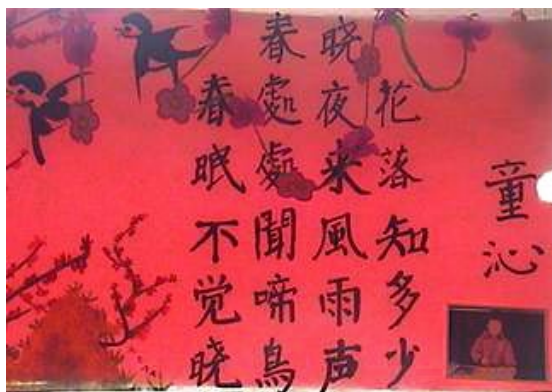 春晓
春眠不觉晓
處處聞啼鳥
夜来風雨声
花落知多少
童沁